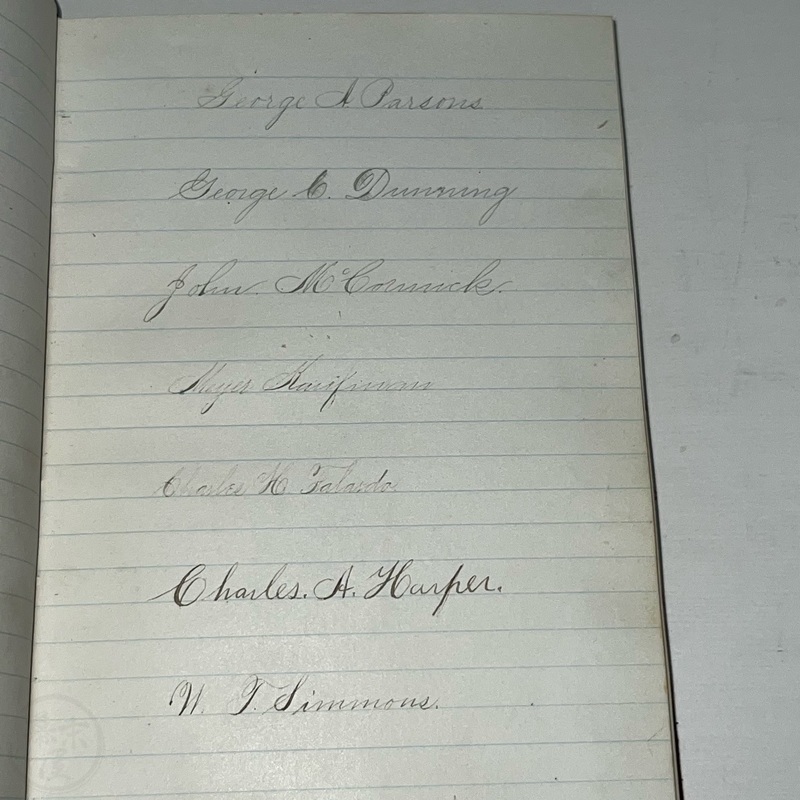 George A Parsons
George C. Dunning
John McCormick.
Meyer Kaufmann
Charles H
Charles. A. Harper.
W. T. Simmons.